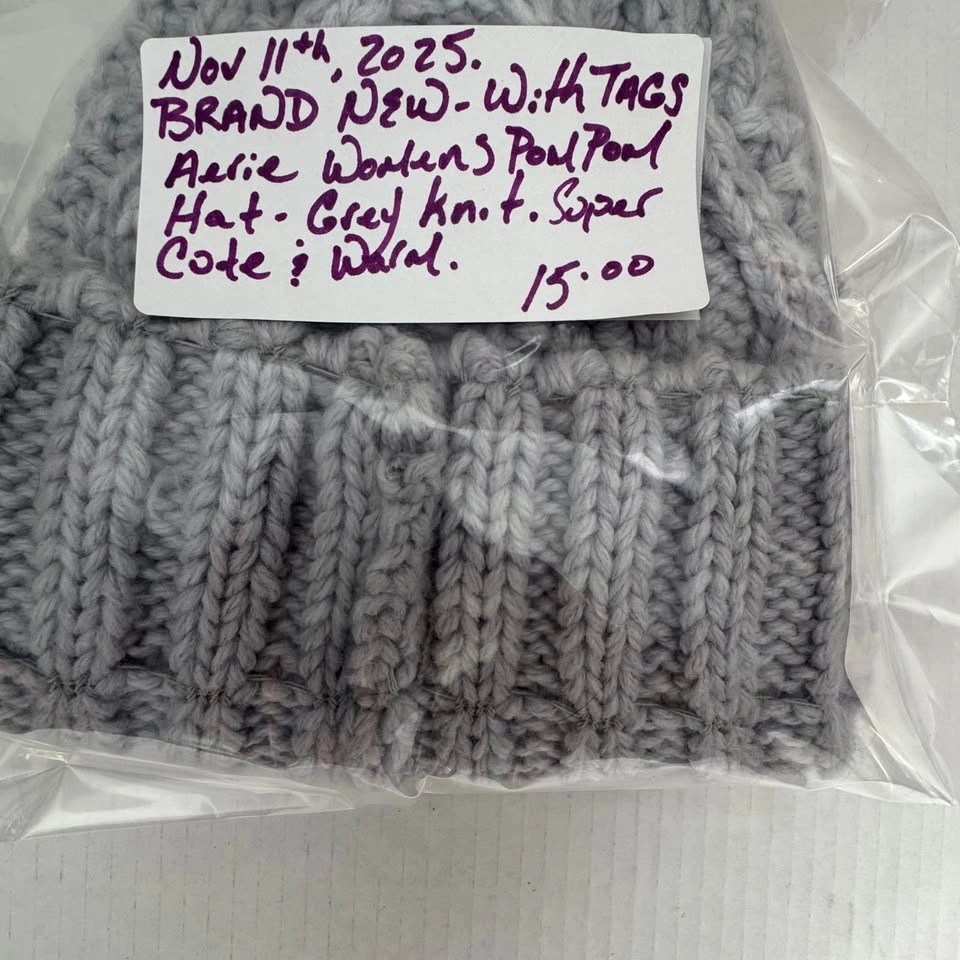 Nov 11th, 2025.
BRAND NEW - With TAGS
Aerie Womens PomPom
Hat - Grey Knit. Super
Cute & Warm.
15.00